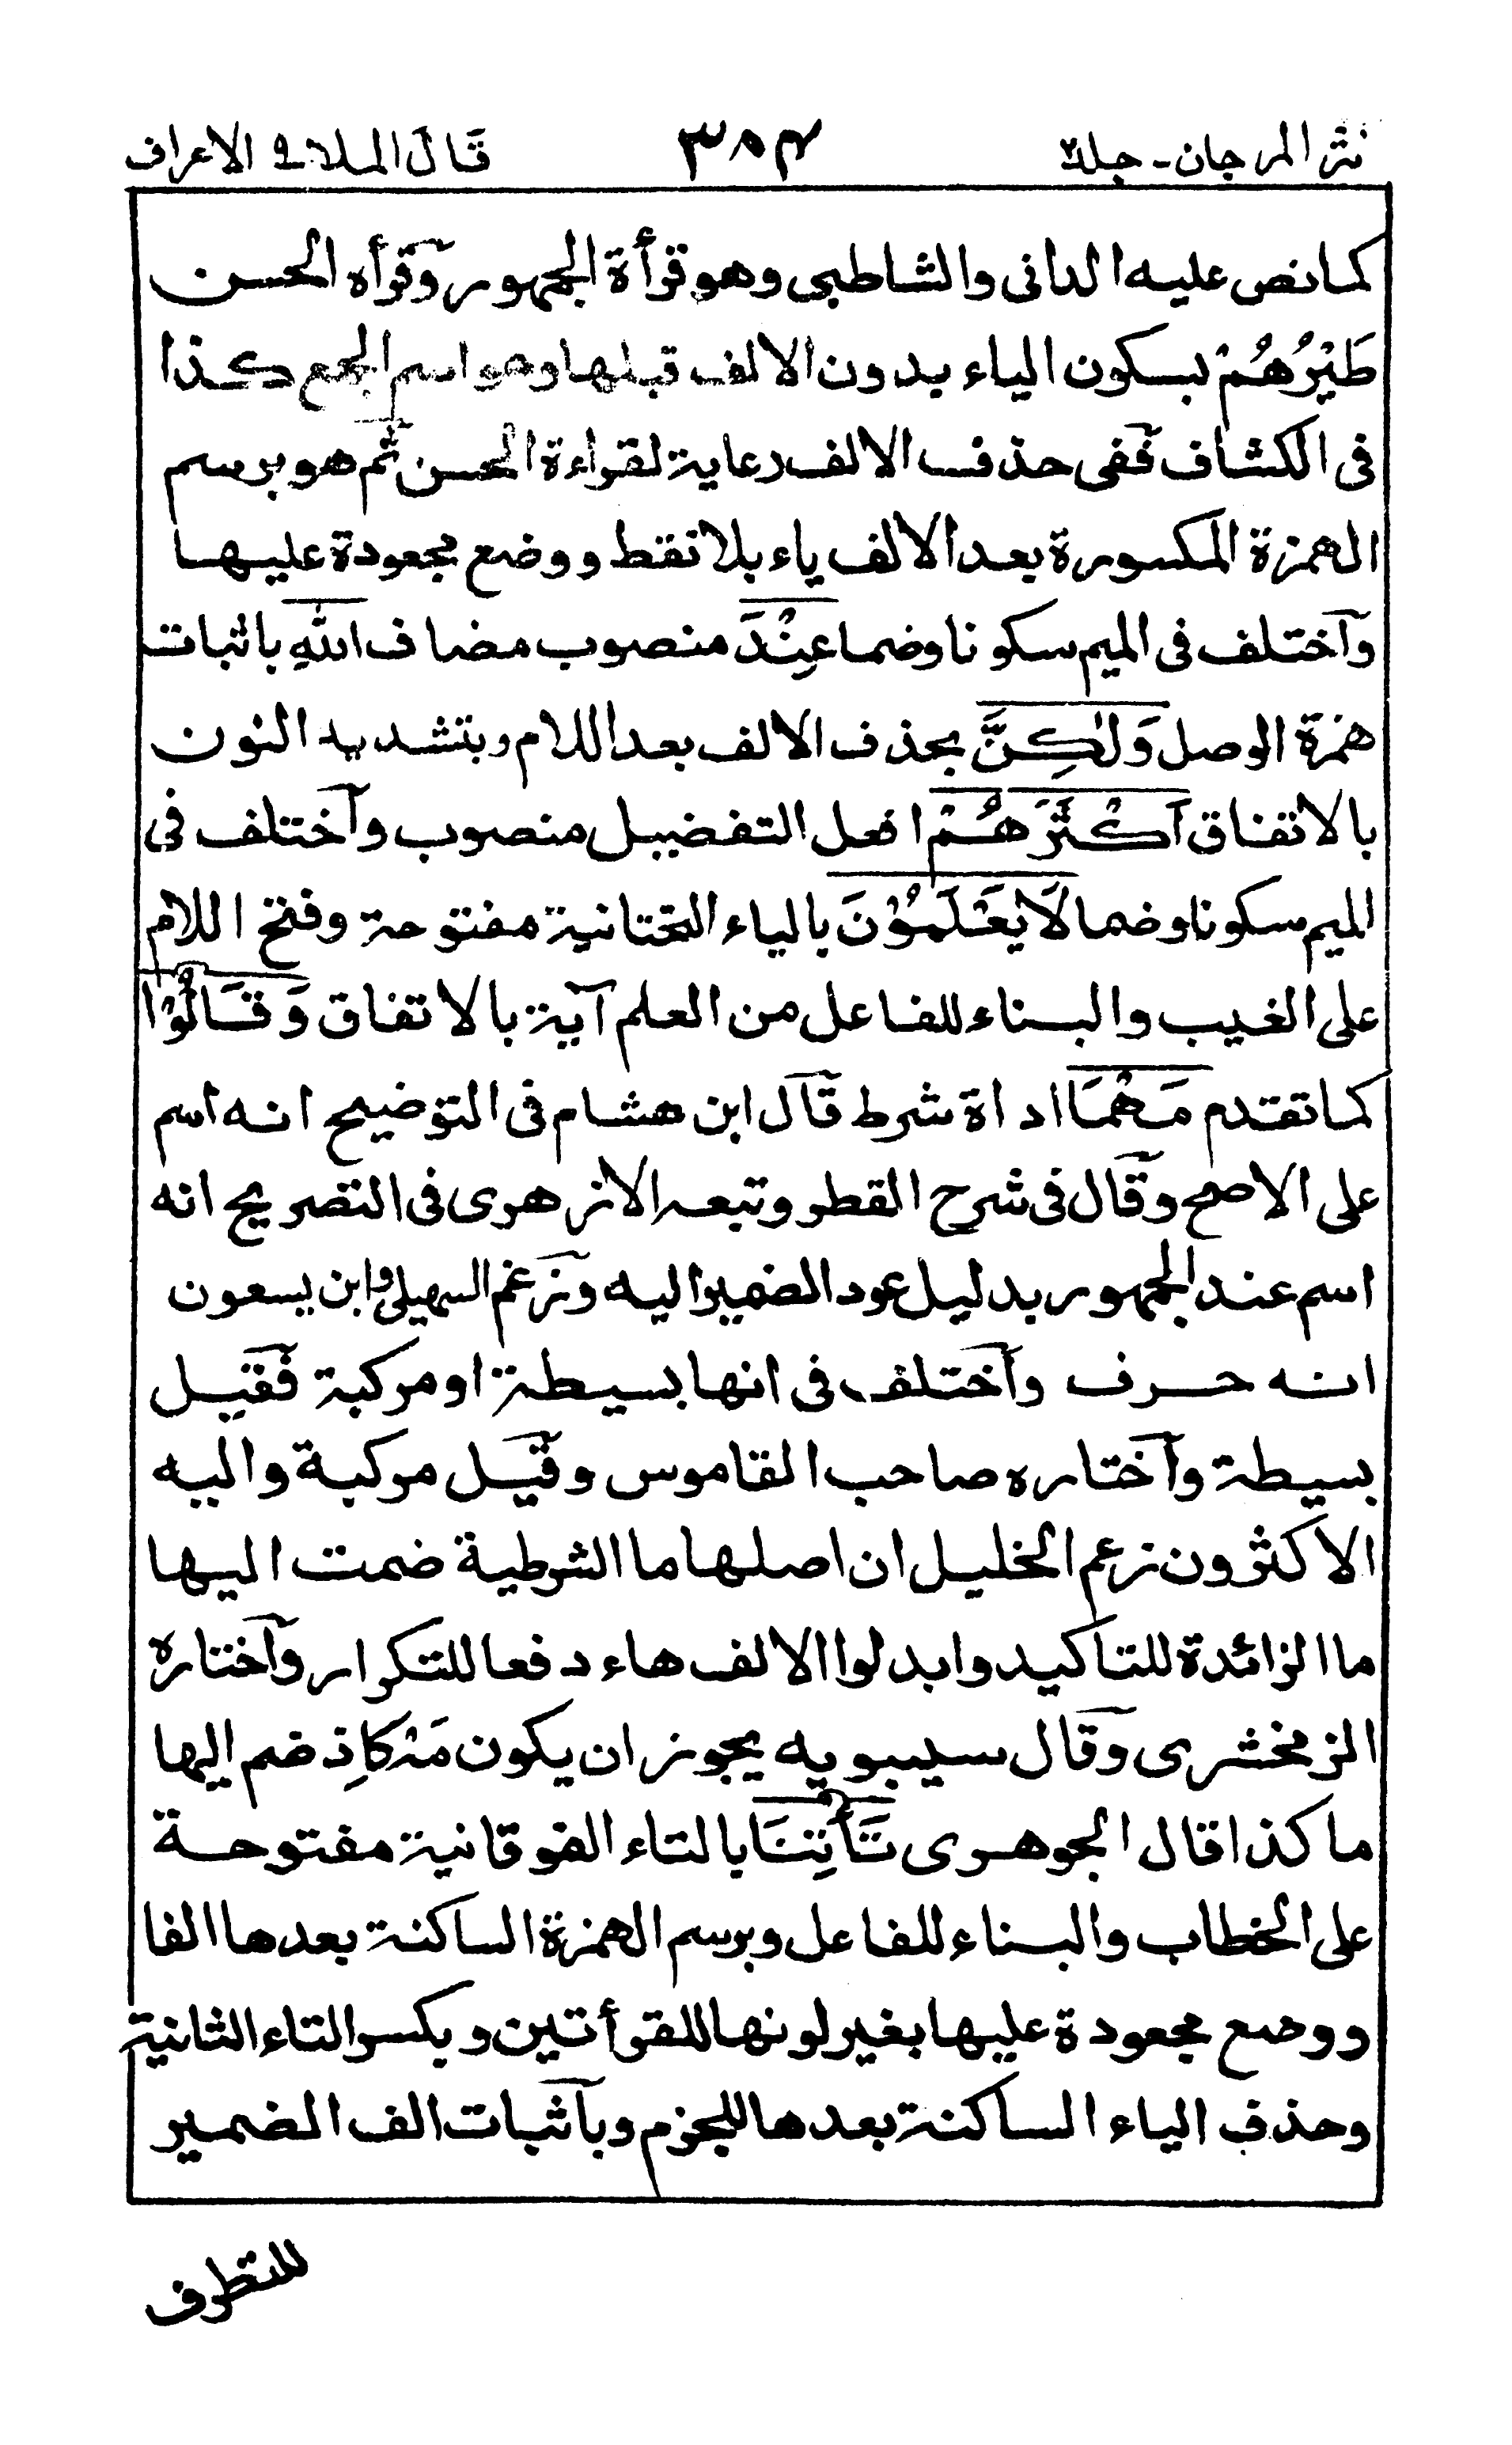 نثر المرجان - جلد٢ ٣٨٤ قَالَ الملاء٩ الاعراف
كما نص عليه الدانى والشاطبى وهو قرأة الجمهور وقرأه الحسن
طَيْرُهُمْ بسكون الياء بدون الالف قبلها وهو اسم الجمع كذا
فى الكشاف ففى حذف الالف رعاية لقراءة الحسن ثم هو برسم
الهمزة المكسورة بعد الالف ياء بلا نقط ووضع مجعودة عليها
وآختلف فى الميم سكونا وضما عِنْدَ منصوب مضاف اللّٰهِ باثبات
همزة الوصل وَلٰكِنَّ بحذف الالف بعد اللام وبتشديد النون
بالاتفاق اَكْثَرَهُمْ افعل التفضيل منصوب وآختلف فى
الميم سكونا وضما لَا يَعْلَمُوْنَ بالياء التحتانية مفتوحة وفتح اللام
على الغيب والبناء للفاعل من العلم آية بالاتفاق وَقَالُوْا
كما تقدم مَهْمَا اداة شرط قآل ابن هشام فى التوضيح انه اسم
على الاصح وقآل فى شرح القطر وتبعه الازهرى فى التصريح انه
اسم عند الجمهور بدليل عود الضمير اليه وزعم السهيلى وابن يسعون
انه حرف وآختلف فى انها بسيطة او مركبة فقيل
بسيطة وآختاره صاحب القاموس وقيل مركبة واليه
الاكثرون زعم الخليل ان اصلها ما الشرطية ضمت اليها
ما الزائدة للتاكيد وابدلوا الالف هاء دفعا للتكرار وآختاره
الزمخشرى وقآل سيبويه يجوز ان يكون مَهْ كاِذ ضم اليها
ما كذا قال الجوهرى تَأْتِنَا بالتاء الفوقانية مفتوحة
على الخطاب والبناء للفاعل وبرسم الهمزة الساكنة بعدها الفا
ووضع مجعودة عليها بغير لونها للقرأتين وبكسر التاء الثانية
وحذف الياء الساكنة بعدها للجزم وبآثبات الف الضمير
للتطرف